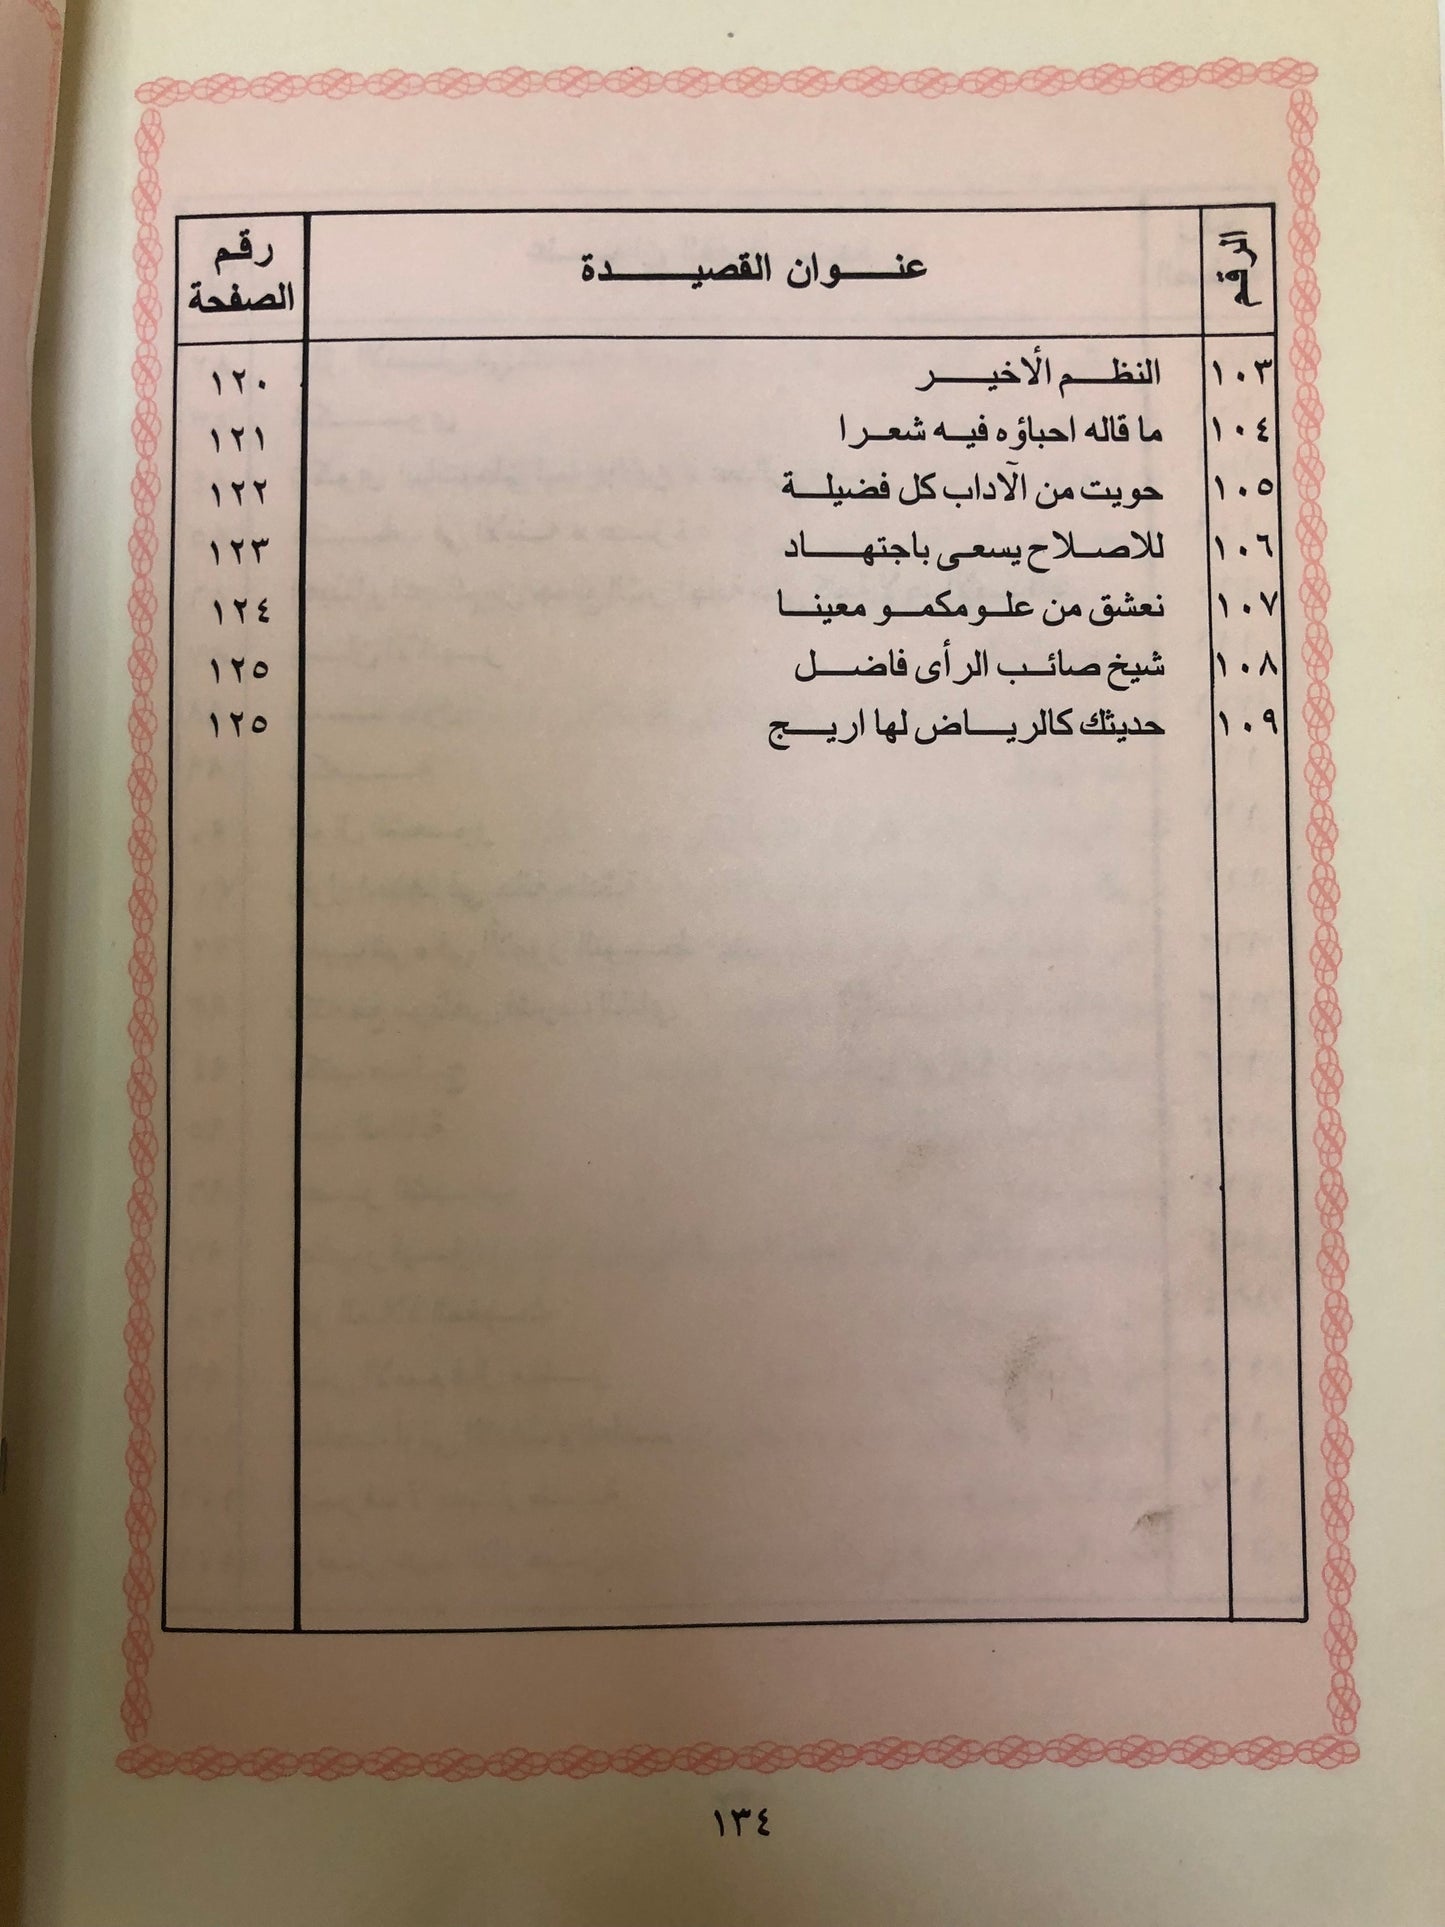 الرقم عنوان القصيدة رقم الصفحة
١٠٣ النظم الأخير ١٢٠
١٠٤ ما قاله احباؤه فيه شعرا ١٢١
١٠٥ حويت من الآداب كل فضيلة ١٢٢
١٠٦ للاصلاح يسعى باجتهاد ١٢٣
١٠٧ نعشق من علومكمو معينا ١٢٤
١٠٨ شيخ صائب الرأى فاضل ١٢٥
١٠٩ حديثك كالرياض لها اريج ١٢٥
١٣٤